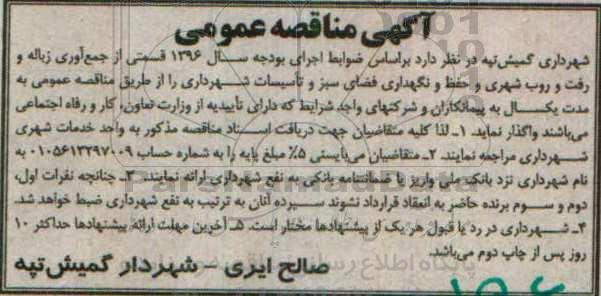 آگهی مناقصه عمومی
شهرداری گمیش‌تپه در نظر دارد براساس ضوابط اجرای بودجه سال ۱۳۹۶ قسمتی از جمع‌آوری زباله و
رفت و روب شهری و حفظ و نگهداری فضای سبز و تأسیسات شهرداری را از طریق مناقصه عمومی به
مدت یکسال به پیمانکاران و شرکتهای واجد شرایط که دارای تأییدیه از وزارت تعاون، کار و رفاه اجتماعی
می‌باشند واگذار نماید. ۱ـ لذا کلیه متقاضیان جهت دریافت اسناد مناقصه مذکور به واحد خدمات شهری
شهرداری مراجعه نمایند. ۲ـ متقاضیان می‌بایستی ۵٪ مبلغ پایه را به شماره حساب ۰۱۰۵۶۱۳۲۹۷۰۰۹ به
نام شهرداری نزد بانک ملی واریز یا ضمانتنامه بانکی به نفع شهرداری ارائه نمایند. ۳ـ چنانچه نفرات اول،
دوم و سوم برنده حاضر به انعقاد قرارداد نشوند سپرده آنان به ترتیب به نفع شهرداری ضبط خواهد شد.
۴ـ شهرداری در رد یا قبول هر یک از پیشنهادها مختار است. ۵ـ آخرین مهلت ارائه پیشنهادها حداکثر ۱۰
روز پس از چاپ دوم می‌باشد.
صالح ایری – شهردار گمیش‌تپه